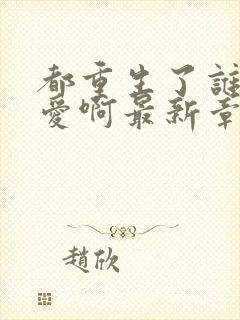 都重生了誰
愛啊最新章
趙欣